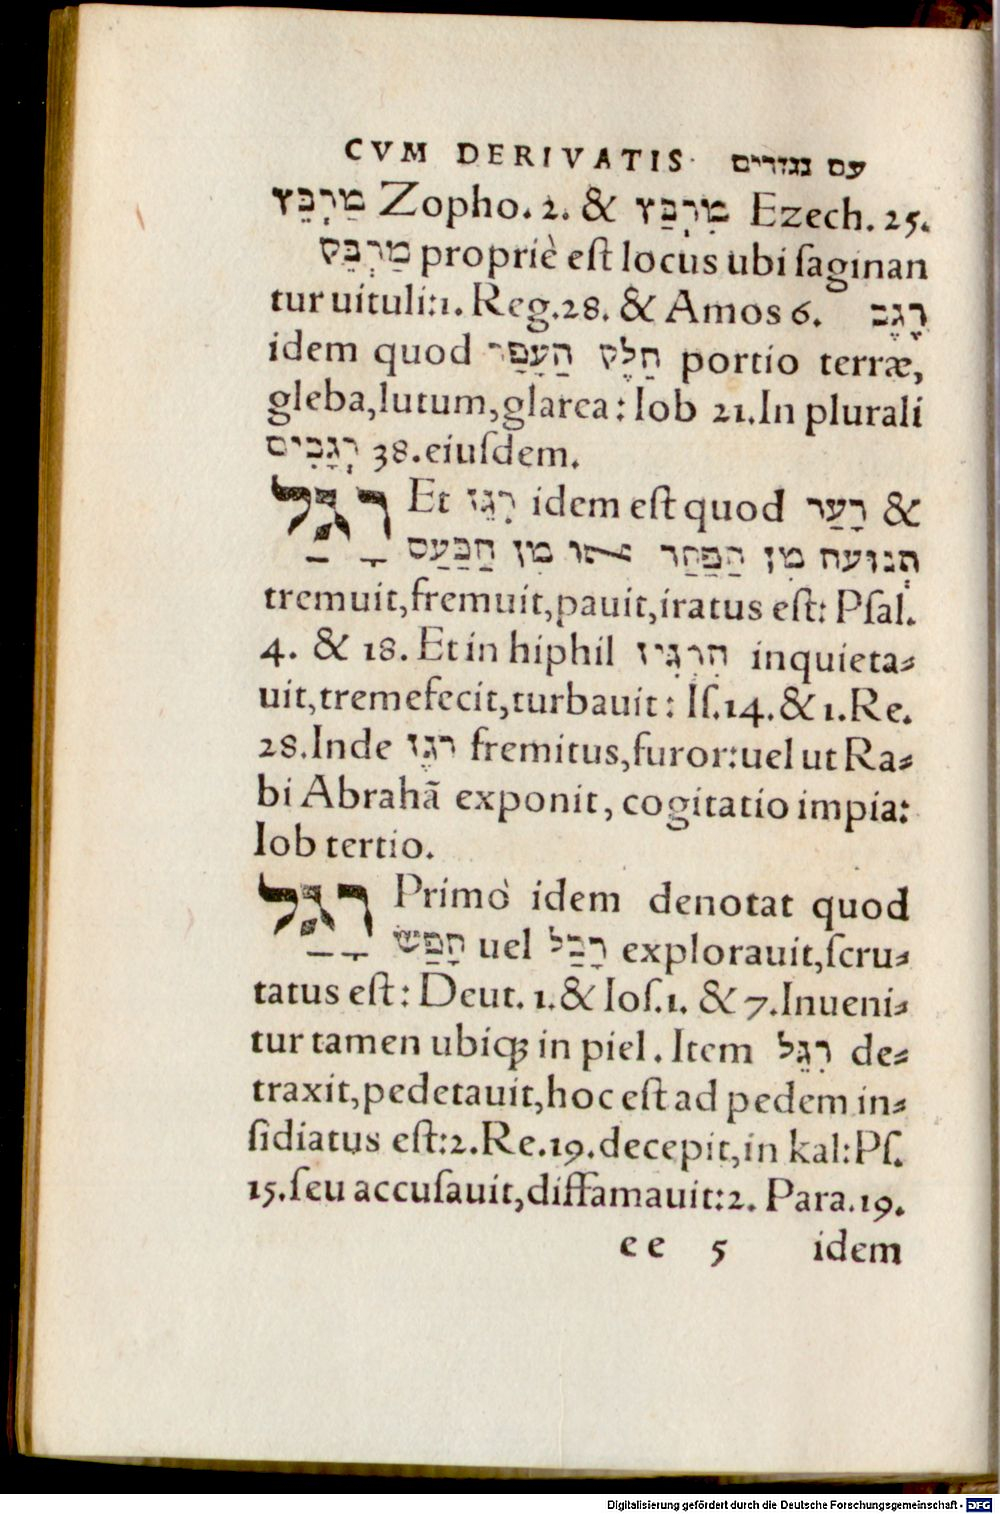 CVM DERIVATIS· עם נגזרים
מַרְבֵּץ Zopho. 2. & מִרְבַּץ Ezech. 25.
מַרְבֵּק propriè eſt locus ubi ſaginan
tur uituli:1. Reg.28. & Amos 6. רֶגֶב
idem quod חֵלֶק הֶעָפָר portio terræ,
gleba,lutum,glarea: Iob 21.In plurali
רְגָבִים 38.eiuſdem.
רָגַל Et רָגֵז idem eſt quod רָעַד &
תְנועה מִן הַפַּחַד או מִן הַכַּעַס
tremuit,fremuit,pauit,iratus eſt: Pſal.
4. & 18. Et in hiphil הִרְגִּיז inquieta⸗
uit,tremefecit,turbauit: Iſ.14.& 1.Re.
28.Inde רגֶז fremitus,furor:uel ut Ra⸗
bi Abrahã exponit, cogitatio impia:
Iob tertio.
רָגַל Primò idem denotat quod
חָפַשׂ uel רָגַל explorauit,ſcru⸗
tatus eſt: Deut. 1.& Ioſ.1. & 7.Inueni⸗
tur tamen ubiqꝫ in piel. Item רִגֵּל de⸗
traxit,pedetauit,hoc eſt ad pedem in⸗
ſidiatus eſt:2.Re.19.decepit,in kal:Pſ.
15.ſeu accuſauit,diffamauit:2. Para.19.
ee 5 idem
Digitalisierung gefördert durch die Deutsche Forschungsgemeinschaft - DFG